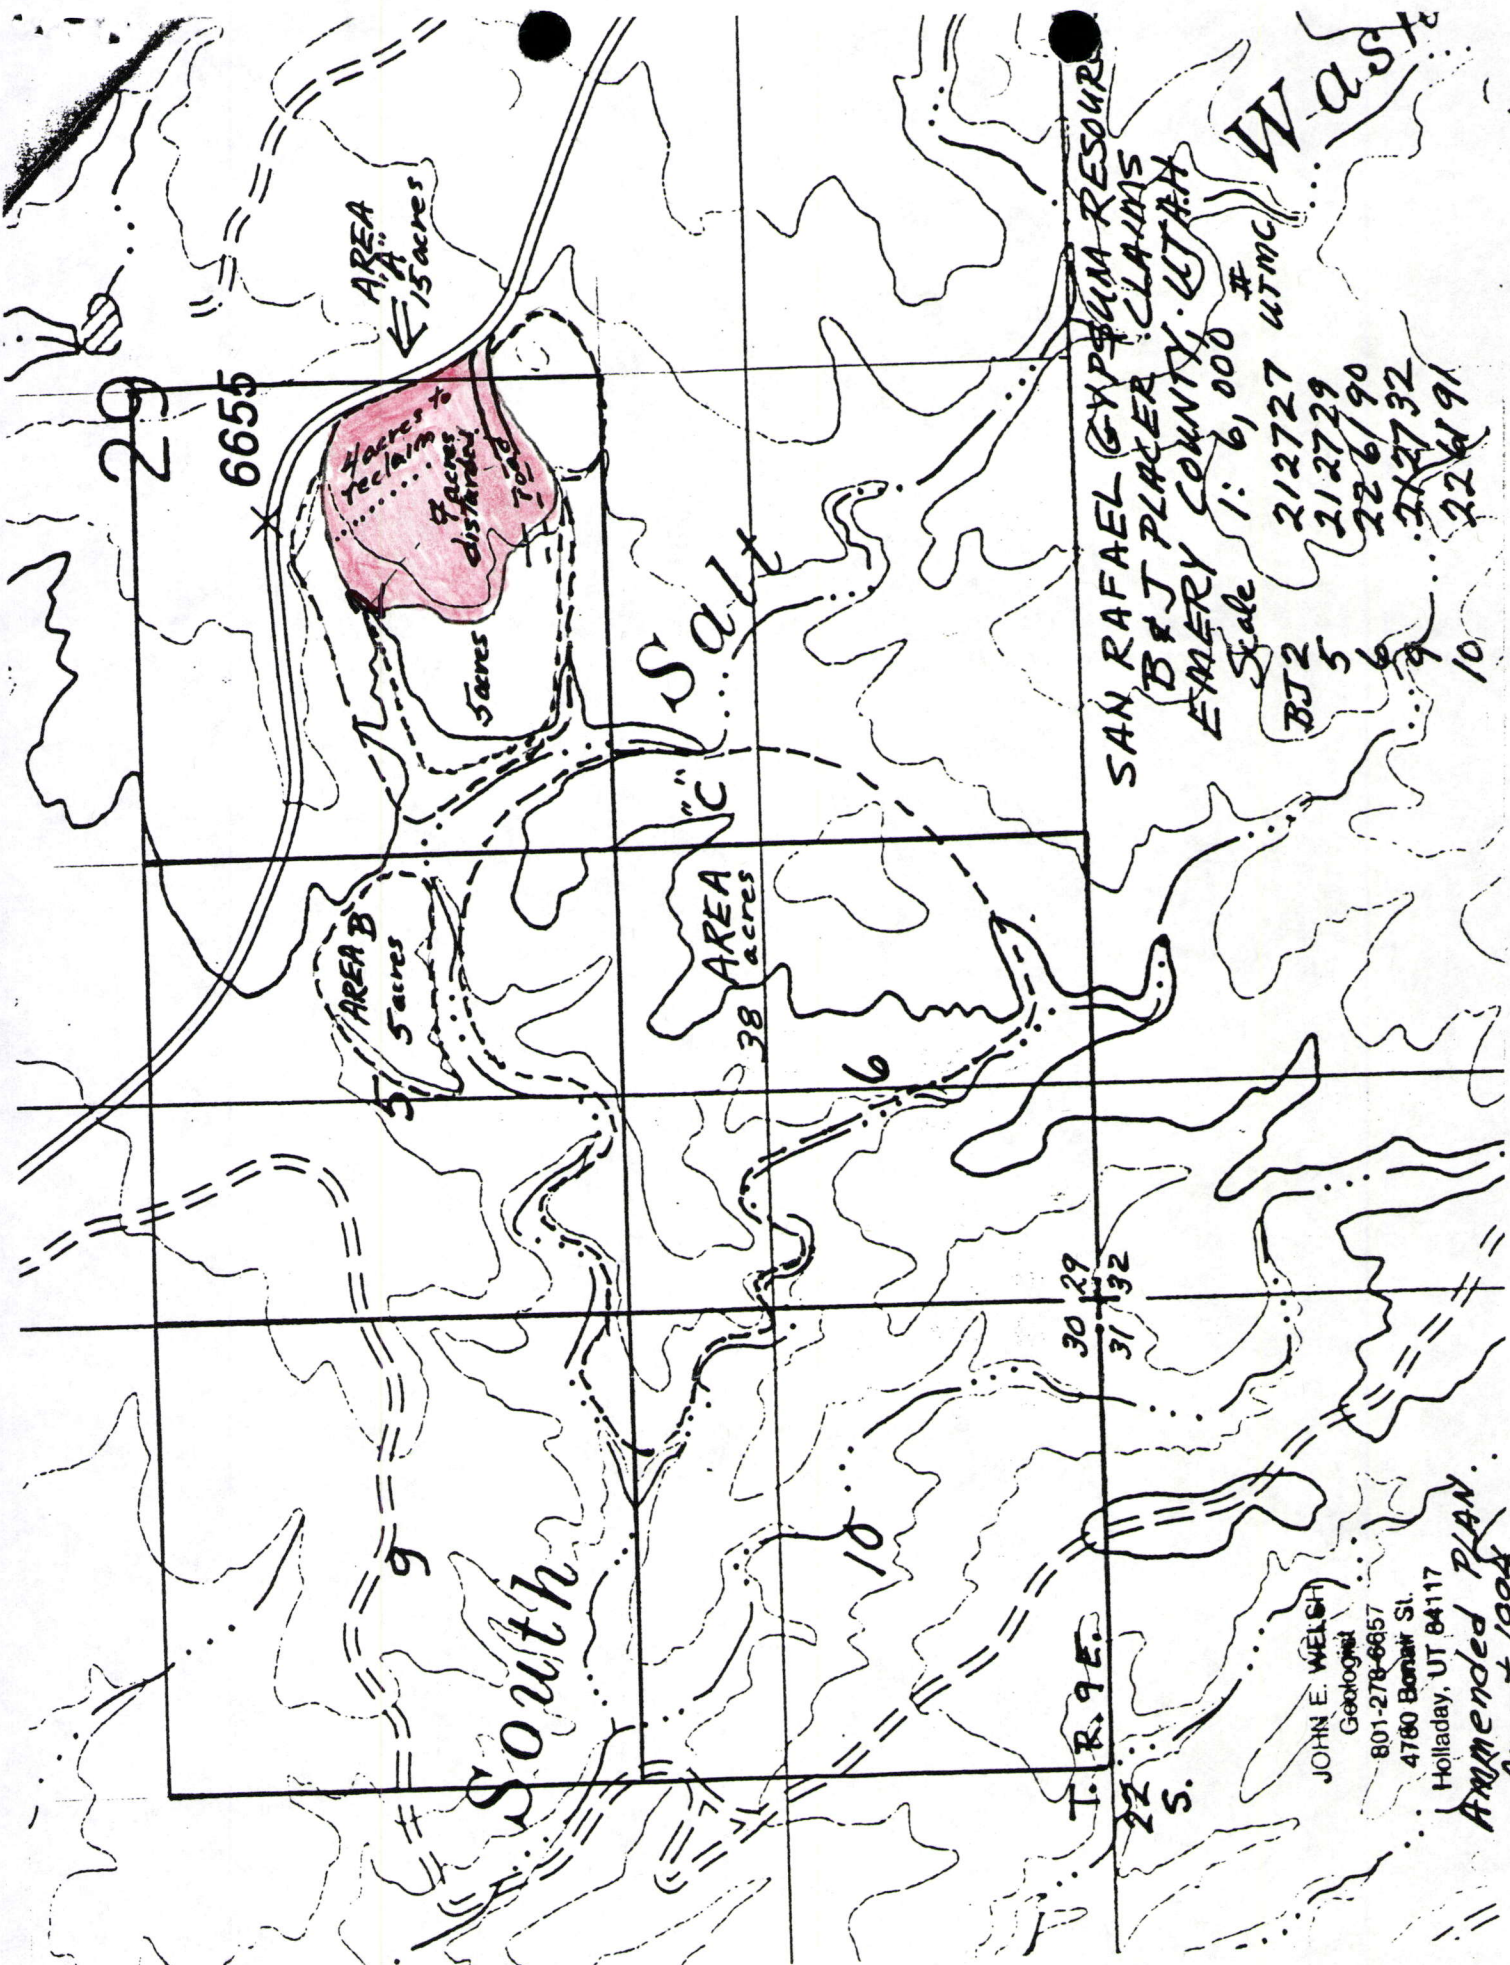 29
6655
AREA
"A"
15 acres
4 acres to
reclaim
9 acres
disturbed
road
5 acres
Salt
Wash
AREA B
5 acres
5
AREA "C"
38 acres
6
9
South
10
30 29
31 32
T. R. 9 E.
22
S.
SAN RAFAEL GYPSUM RESOUR
B & J PLACER CLAIMS
EMERY COUNTY, UTAH
Scale 1: 6,000 #
UTMC
BJ 2 212727
5 212729
6 226190
9 212732
10 226191
JOHN E. WELSH
Geologist
801-278-6657
4780 Bonair St.
Holladay, UT 84117
Ammended PLAN